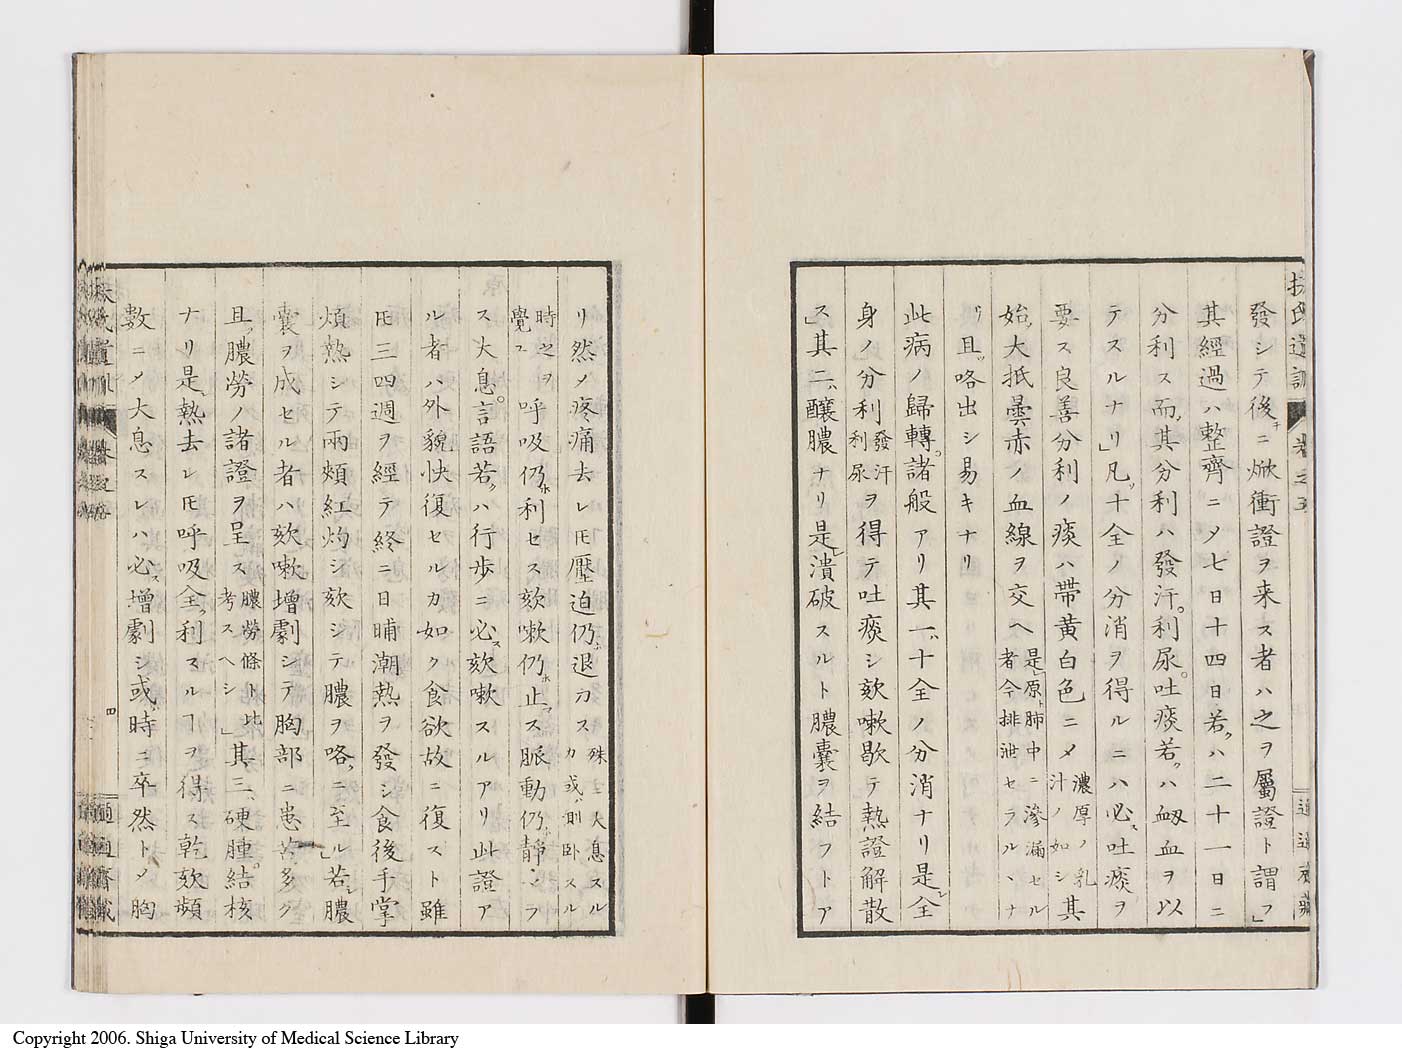 扶氏遺訓 卷之五
發シテ後チニ焮衝證ヲ来ス者ハ之ヲ屬證ト謂フ」
其經過ハ整齊ニメ七日十四日若クハ二十一日ニ
分利ス而其分利ハ發汗。利尿。吐痰若クハ衂血ヲ以
テスルナリ」凡ソ十全ノ分消ヲ得ルニハ必ス吐痰ヲ
要ス良善分利ノ痰ハ帶黄白色ニメ濃厚ノ乳汁ノ如シ其
始メ大抵曇赤ノ血線ヲ交ヘ是レ原ト肺中ニ滲漏セル者今排泄セラルヽナ
リ且ツ咯出シ易キナリ
此病ノ歸轉。諸般アリ其一ハ十全ノ分消ナリ是レ全
身ノ分利發汗利尿ヲ得テ吐痰シ欬嗽歇テ熱證解散
ス其二ハ醸膿ナリ是レ潰破スルト膿嚢ヲ結フトア
リ然メ疼痛去レ𪜈壓迫仍ホ退カス殊ニ大息スルカ或ハ則卧スル
時之ヲ覺ユ呼吸仍ホ利セス欬嗽仍ホ止マス脈動仍ホ静ニラ
ス大息。言語若クハ行歩ニ必ス欬嗽スルアリ此證ア
ル者ハ外貌快復セルカ如ク食欲故ニ復スト雖
𪜈三四週ヲ經テ終ニ日晡潮熱ヲ發シ食後手掌
煩熱シテ兩頰紅灼シ欬シテ膿ヲ咯クニ至ル」若シ膿
嚢ヲ成セル者ハ欬嗽增劇シテ胸部ニ患苦多ク
且ツ膿勞ノ諸證ヲ呈ス膿勞條ト比考スヘシ」其三ハ硬腫。結核
ナリ是レ熱去レ𪜈呼吸全ク利スルヿヲ得ス乾欬頻
數ニメ大息スレハ必ス增劇シ或ハ時ニ卒然トメ胸
四
Copyright 2006. Shiga University of Medical Science Library